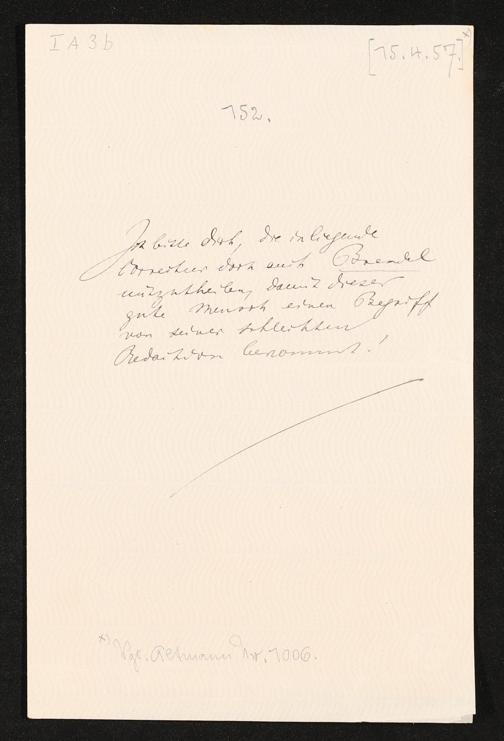 I A 3 b
[15.4.57.]*)
152.
Ich bitte dich, die inliegende
Correctur doch auch Brendel
mitzutheilen, damit dieser
gute Mensch einen Begriff
von seiner schlechten
Redaction bekommt!
*) Vgl. Altmann Nr. 1006.